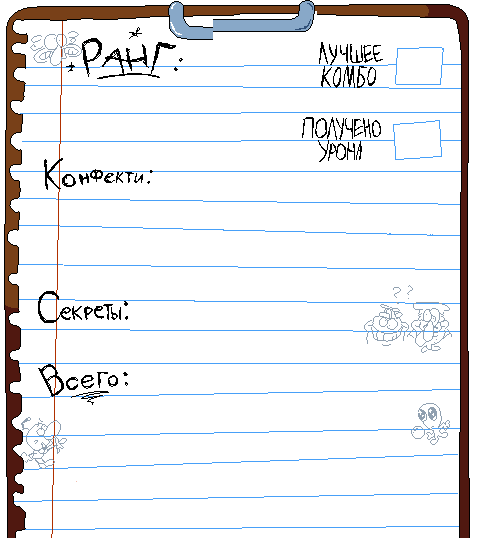 РАНГ:
ЛУЧШЕЕ
КОМБО
ПОЛУЧЕНО
УРОНА
Конфекти:
??
Секреты:
Всего: